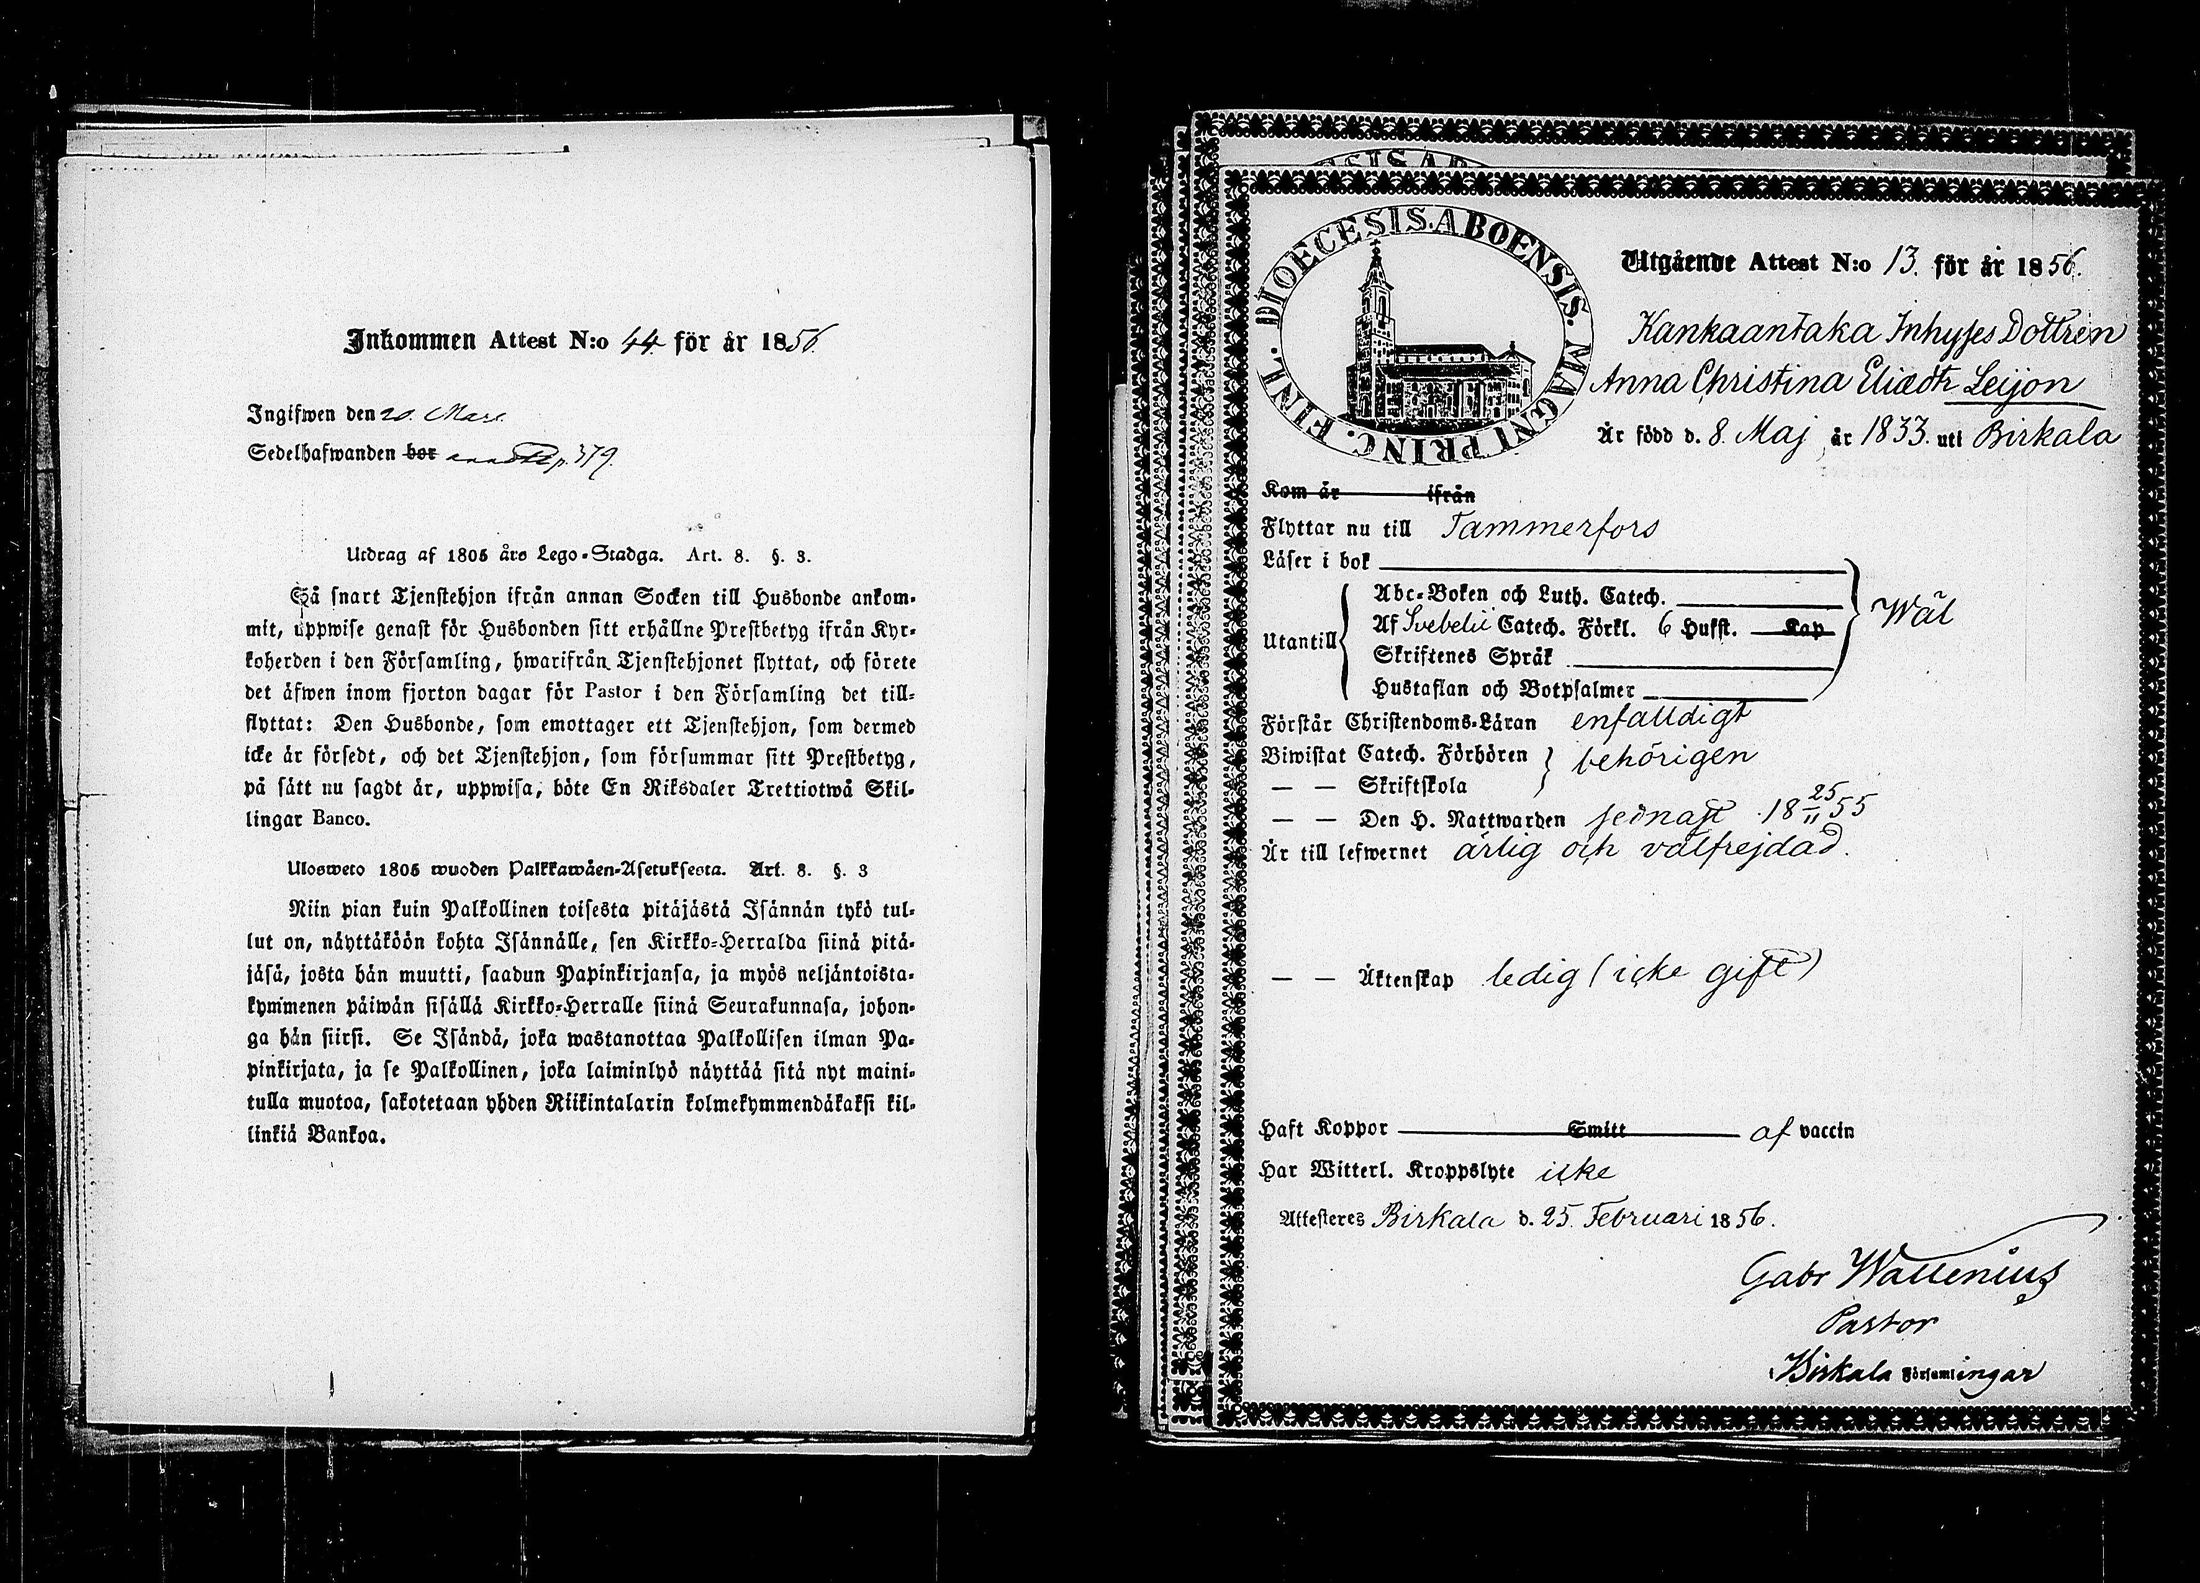 Inkommen Attest N:o 44. för år 1856.
Ingifwen den 20. Mars.
Sedelhafwanden bor p. 379.
Utdrag af 1805 års Lego-Stadga. Art. 8. §. 3.
Så snart Tjenstehjon ifrån annan Socken till Husbonde ankom-
mit, uppwise genast för Husbonden sitt erhållne Prestbetyg ifrån Kyr-
koherden i den Församling, hwarifrån Tjenstehjonet flyttat, och förete
det äfwen inom fjorton dagar för Pastor i den Församling det till-
flyttat: Den Husbonde, som emottager ett Tjenstehjon, som dermed
icke är försedt, och det Tjenstehjon, som försummar sitt Prestbetyg,
på sätt nu sagdt är, uppwisa, böte En Riksdaler Trettiotwå Skil-
lingar Banco.
Ulosweto 1805 wuoden Palkkawäen-Asetuksesta. Art. 8. §. 3
Niin pian kuin Palkollinen toisesta pitäjästä Isännän tykö tul-
lut on, näyttäköön kohta Isännälle, sen Kirkko-Herralda siinä pitä-
jäsä, josta hän muutti, saadun Papinkirjansa, ja myös neljäntoista-
kymmenen päiwän sisällä Kirkko-Herralle siinä Seurakunnasa, johon-
ga hän siirsi. Se Isändä, joka wastanottaa Palkollisen ilman Pa-
pinkirjata, ja se Palkollinen, joka laiminlyö näyttää sitä nyt maini-
tulla muotoa, sakotetaan yhden Riikintalarin kolmekymmendäkaksi kil-
linkiä Bankoa.
DIOECESIS ABOENSIS. MAGNI PRINC. FINL.
Utgående Attest N:o 13. för år 1856.
Kankaantaka Inhyses Dottren
Anna Christina Eliædtr Leijon
Är född d. 8. Maj år 1833. uti Birkala
Kom år ifrån
Flyttar nu till Tammerfors
Läser i bok
Utantill
Abc-Boken och Luth. Catech.
Af Svebelii Catech. Förkl. 6 Hufst. Kap
Skriftenes Språk
Hustaflan och Botpsalmer
Wäl
Förstår Christendoms-Läran enfalldigt
Biwistat Catech. Förhören
— — Skriftskola
behörigen
— — Den H. Nattwarden sednast 18 25/11 55
Är till lefwernet ärlig och välfrejdad.
— — Äktenskap ledig (icke gift)
Haft Koppor Smitt af vaccin
Har Witterl. Kroppslyte icke
Attesteres Birkala d. 25. Februari 1856.
Gabr Wallenius
Pastor
i Birkala Församlingar